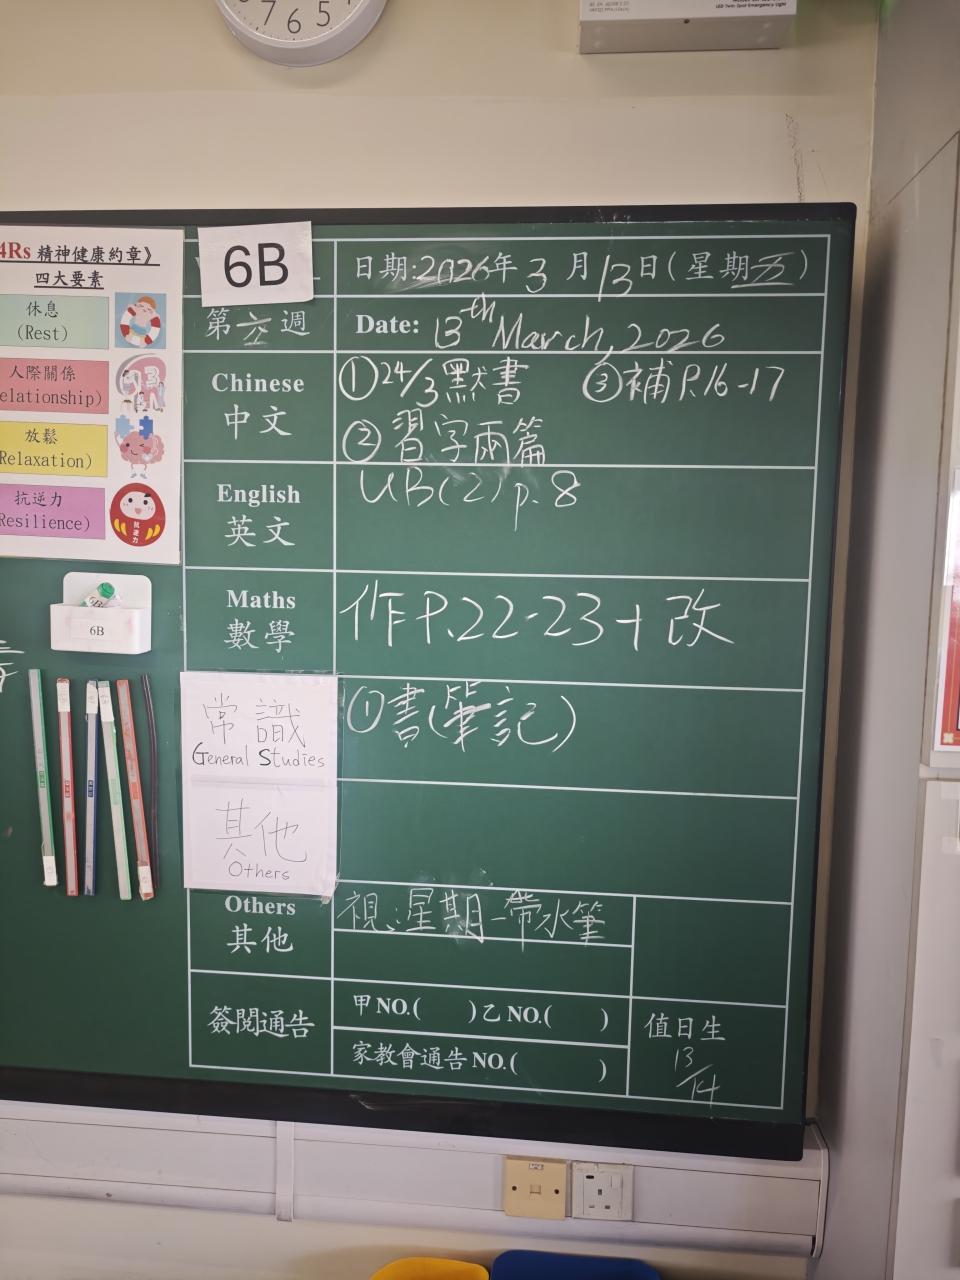 7 6 5
LED Twin Spot Emergency Light
4Rs 精神健康約章》
四大要素
休息
(Rest)
人際關係
elationship)
放鬆
Relaxation)
抗逆力
Resilience)
抗逆力
6B
6B
日期:2026年3月13日(星期五)
第六週
Date: 13th March, 2026
Chinese
中文
①24/3默書 ③補P.16-17
②習字兩篇
English
英文
UB(2) p.8
Maths
數學
作P.22-23+改
常識
General Studies
①書(筆記)
其他
Others
Others
其他
視:星期一帶水筆
簽閱通告
甲NO.( )乙NO.( )
家教會通告NO.( )
值日生
13/14